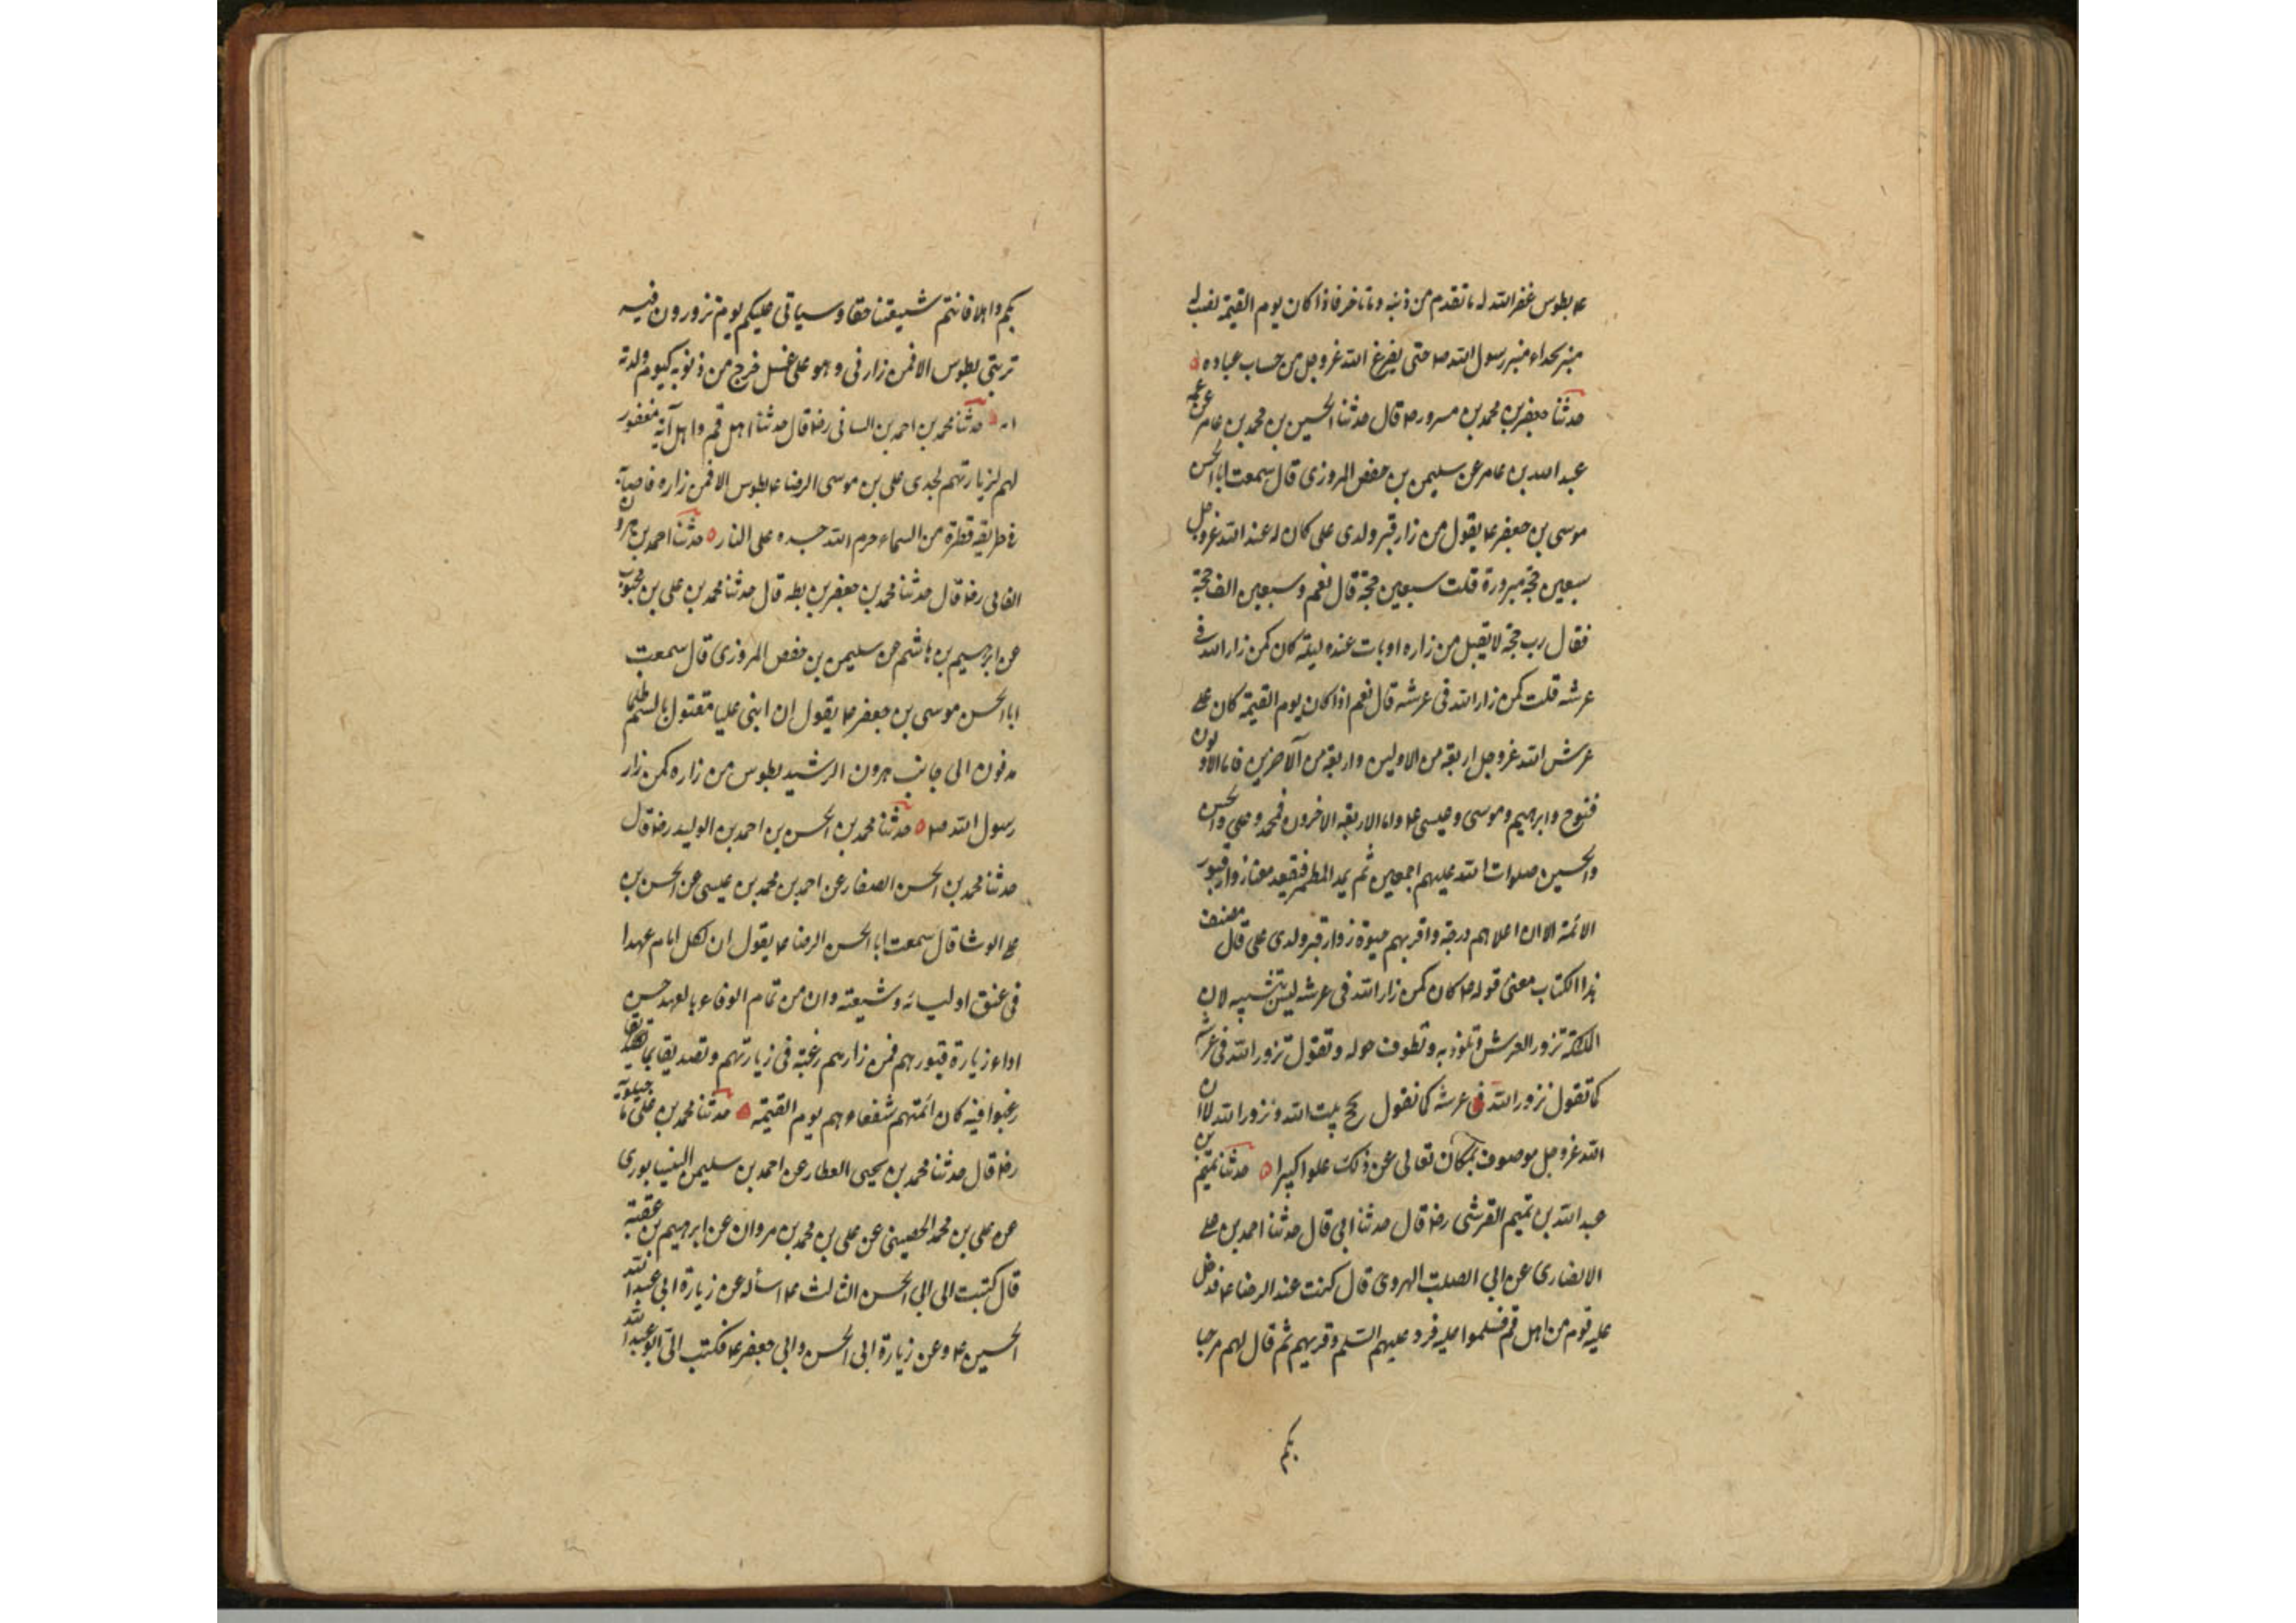 ع بطوس غفر الله له ما تقدم من ذنبه وما تاخر فاذا كان يوم القيمة نصب له
منبر بحذاء منبر رسول الله ص حتى يفرغ الله عز وجل من حساب عباده
حدثنا جعفر بن محمد بن مسرور رض قال حدثنا الحسين بن محمد بن عامر عن عمه
عبد الله بن عامر عن سليمن بن حفص المروزى قال سمعت ابا الحسن
موسى بن جعفر ع يقول من زار قبر ولدى على كان له عند الله عز وجل
سبعين حجة مبرورة قلت سبعين حجة قال نعم وسبعين الف حجة
فقال رب حجة لا يقبل من زاره او بات عنده ليلة كان كمن زار الله فى
عرشه قلت كمن زار الله فى عرشه قال نعم اذا كان يوم القيمة كان على
عرش الله عز وجل اربعة من الاولين واربعة من الآخرين فاما الاولون
فنوح وابرهيم وموسى وعيسى ع واما الاربعة الاخرون فمحمد وعلى والحسن
والحسين صلوات الله عليهم اجمعين ثم يمد المطمر فيقعد معنا زوار قبور
الائمة الا ان اعلاهم درجة واقربهم حبوة زوار قبر ولدى على قال مصنف
هذا الكتاب معنى قوله ع كان كمن زار الله فى عرشه ليس بتشبيه لان
الملئكة تزور العرش وتلوذ به وتطوف حوله وتقول نزور الله فى عرشه
كما تقول نزور الله فى عرشه كما نقول نحج بيت الله ونزور الله لا ان
الله عز وجل موصوف بمكان تعالى عن ذلك علوا كبيرا حدثنا تميم بن
عبد الله بن تميم القرشى رض قال حدثنا ابى قال حدثنا احمد بن على
الانصارى عن ابى الصلت الهروى قال كنت عند الرضا ع فدخل
عليه قوم من اهل قم فسلموا عليه فرد عليهم السلم وقربهم ثم قال لهم مرحبا
بكم
بكم واهلا فانتم شيعتنا حقا وسياتى عليكم يوم تزورون فيه
تربتى بطوس الا فمن زارنى وهو على غسل خرج من ذنوبه كيوم ولدته
امه حدثنا محمد بن احمد بن السانى رض قال حدثنا اهل قم واهل آبه مغفور
لهم لزيارتهم لجدى على بن موسى الرضا ع بطوس الا فمن زاره فاصابه
فى طريقه قطرة من السماء حرم الله جسده على النار حدثنا احمد بن هرون
الفامى رض قال حدثنا محمد بن جعفر بن بطه قال حدثنا محمد بن على بن محبوب
عن ابرهيم بن هاشم عن سليمن بن حفص المروزى قال سمعت
ابا الحسن موسى بن جعفر ع يقول ان ابنى عليا مقتول بالسم ظلما
مدفون الى جانب هرون الرشيد بطوس من زاره كمن زار
رسول الله ص حدثنا محمد بن الحسن بن احمد بن الوليد رض قال
حدثنا محمد بن الحسن الصفار عن احمد بن محمد بن عيسى عن الحسن بن
على الوشا قال سمعت ابا الحسن الرضا ع يقول ان لكل امام عهدا
فى عنق اوليائه وشيعته وان من تمام الوفاء بالعهد حسن
اداء زيارة قبورهم فمن زارهم رغبة فى زيارتهم وتصديقا بما
رغبوا فيه كان ائمتهم شفعاءهم يوم القيمة حدثنا محمد بن على ماجيلويه
رض قال حدثنا محمد بن يحيى العطار عن احمد بن سليمن النيسابورى
عن على بن محمد الحصينى عن على بن محمد بن مروان عن ابرهيم بن عقبة
قال كتبت الى ابى الحسن الثالث ع اسأله عن زيارة ابى عبد الله
الحسين ع وعن زيارة ابى الحسن وابى جعفر ع فكتب الى ابو عبد الله